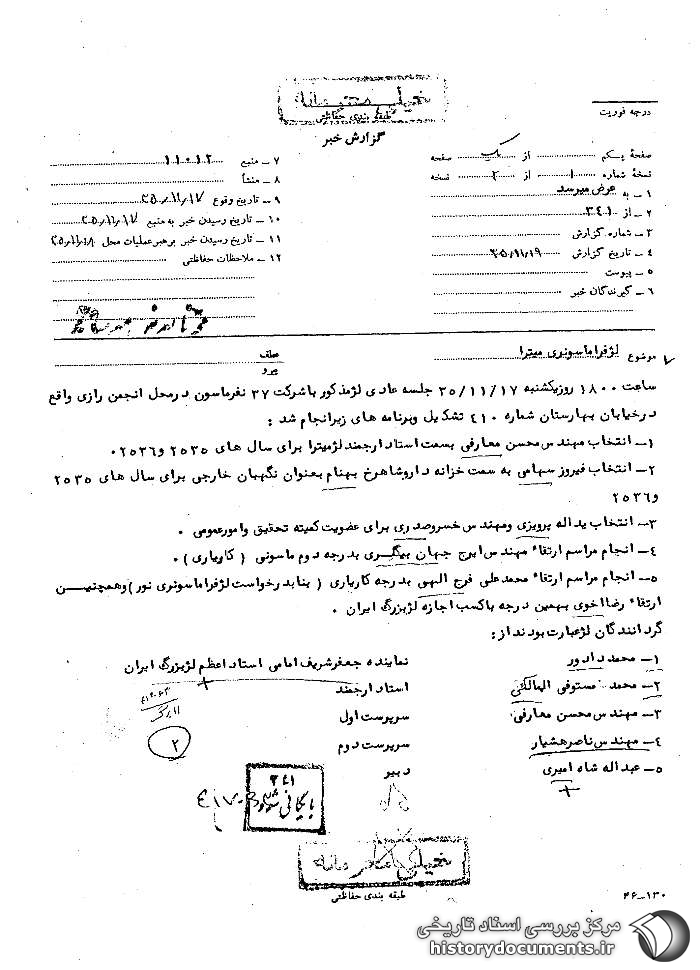 خیلی محرمانه
طبقه بندی حفاظتی
درجه فوریت
گزارش خبر
صفحه یکم از یک صفحه
نسخه شماره ۱ از ۲ نسخه
۱ـ به عرض میرسد
۲ـ از ۳۴۱
۳ـ شماره گزارش
۴ـ تاریخ گزارش ۳۵/۱۱/۱۹
۵ـ پیوست
۶ـ گیرندگان خبر
۷ـ منبع ۱۱۰۱۲
۸ـ منشأ
۹ـ تاریخ وقوع ۳۵/۱۱/۱۷
۱۰ـ تاریخ رسیدن خبر به منبع ۳۵/۱۱/۱۷
۱۱ـ تاریخ رسیدن خبر برهبر عملیات محل ۳۵/۱۱/۱۸
۱۲ـ ملاحظات حفاظتی
موضوع لژ فراماسونری میترا
عطف
پیرو
ساعت ۱۸۰۰ روز یکشنبه ۳۵/۱۱/۱۷ جلسه عادی لژ مذکور با شرکت ۳۷ نفر ماسون در محل انجمن رازی واقع
در خیابان بهارستان شماره ۴۱۰ تشکیل و برنامه های زیر انجام شد :
۱ـ انتخاب مهندس محسن معارفی بسمت استاد ارجمند لژ میترا برای سال های ۲۵۳۵ و ۲۵۳۶.
۲ـ انتخاب فیروز سهامی به سمت خزانه دار و شاهرخ بهنام بعنوان نگهبان خارجی برای سال های ۲۵۳۵
و ۲۵۳۶
۳ـ انتخاب یداله پرویزی و مهندس خسرو صدری برای عضویت کمیته تحقیق و امور عمومی .
۴ـ انجام مراسم ارتقاء مهندس ایرج جهان بیگلری بدرجه دوم ماسونی ( کاریاری ) .
۵ـ انجام مراسم ارتقاء محمد علی فرج الهی بدرجه کاریاری ( بنابدرخواست لژ فراماسونری نور ) و همچنین
ارتقاء رضا اخوی بهمین درجه با کسب اجازه لژ بزرگ ایران .
گردانندگان لژ عبارت بودند از :
۱ـ محمد دادور نماینده جعفر شریف امامی استاد اعظم لژ بزرگ ایران
۲ـ محمد مستوفی الممالکی استاد ارجمند
۳ـ مهندس محسن معارفی سرپرست اول
۴ـ مهندس ناصر هشیار سرپرست دوم
۵ـ عبداله شاه امیری دبیر
۲
۳۴۱
بایگانی شود
خیلی محرمانه
طبقه بندی حفاظتی
۴۶ـ۱۳۰
مرکز بررسی اسناد تاریخی
historydocuments.ir